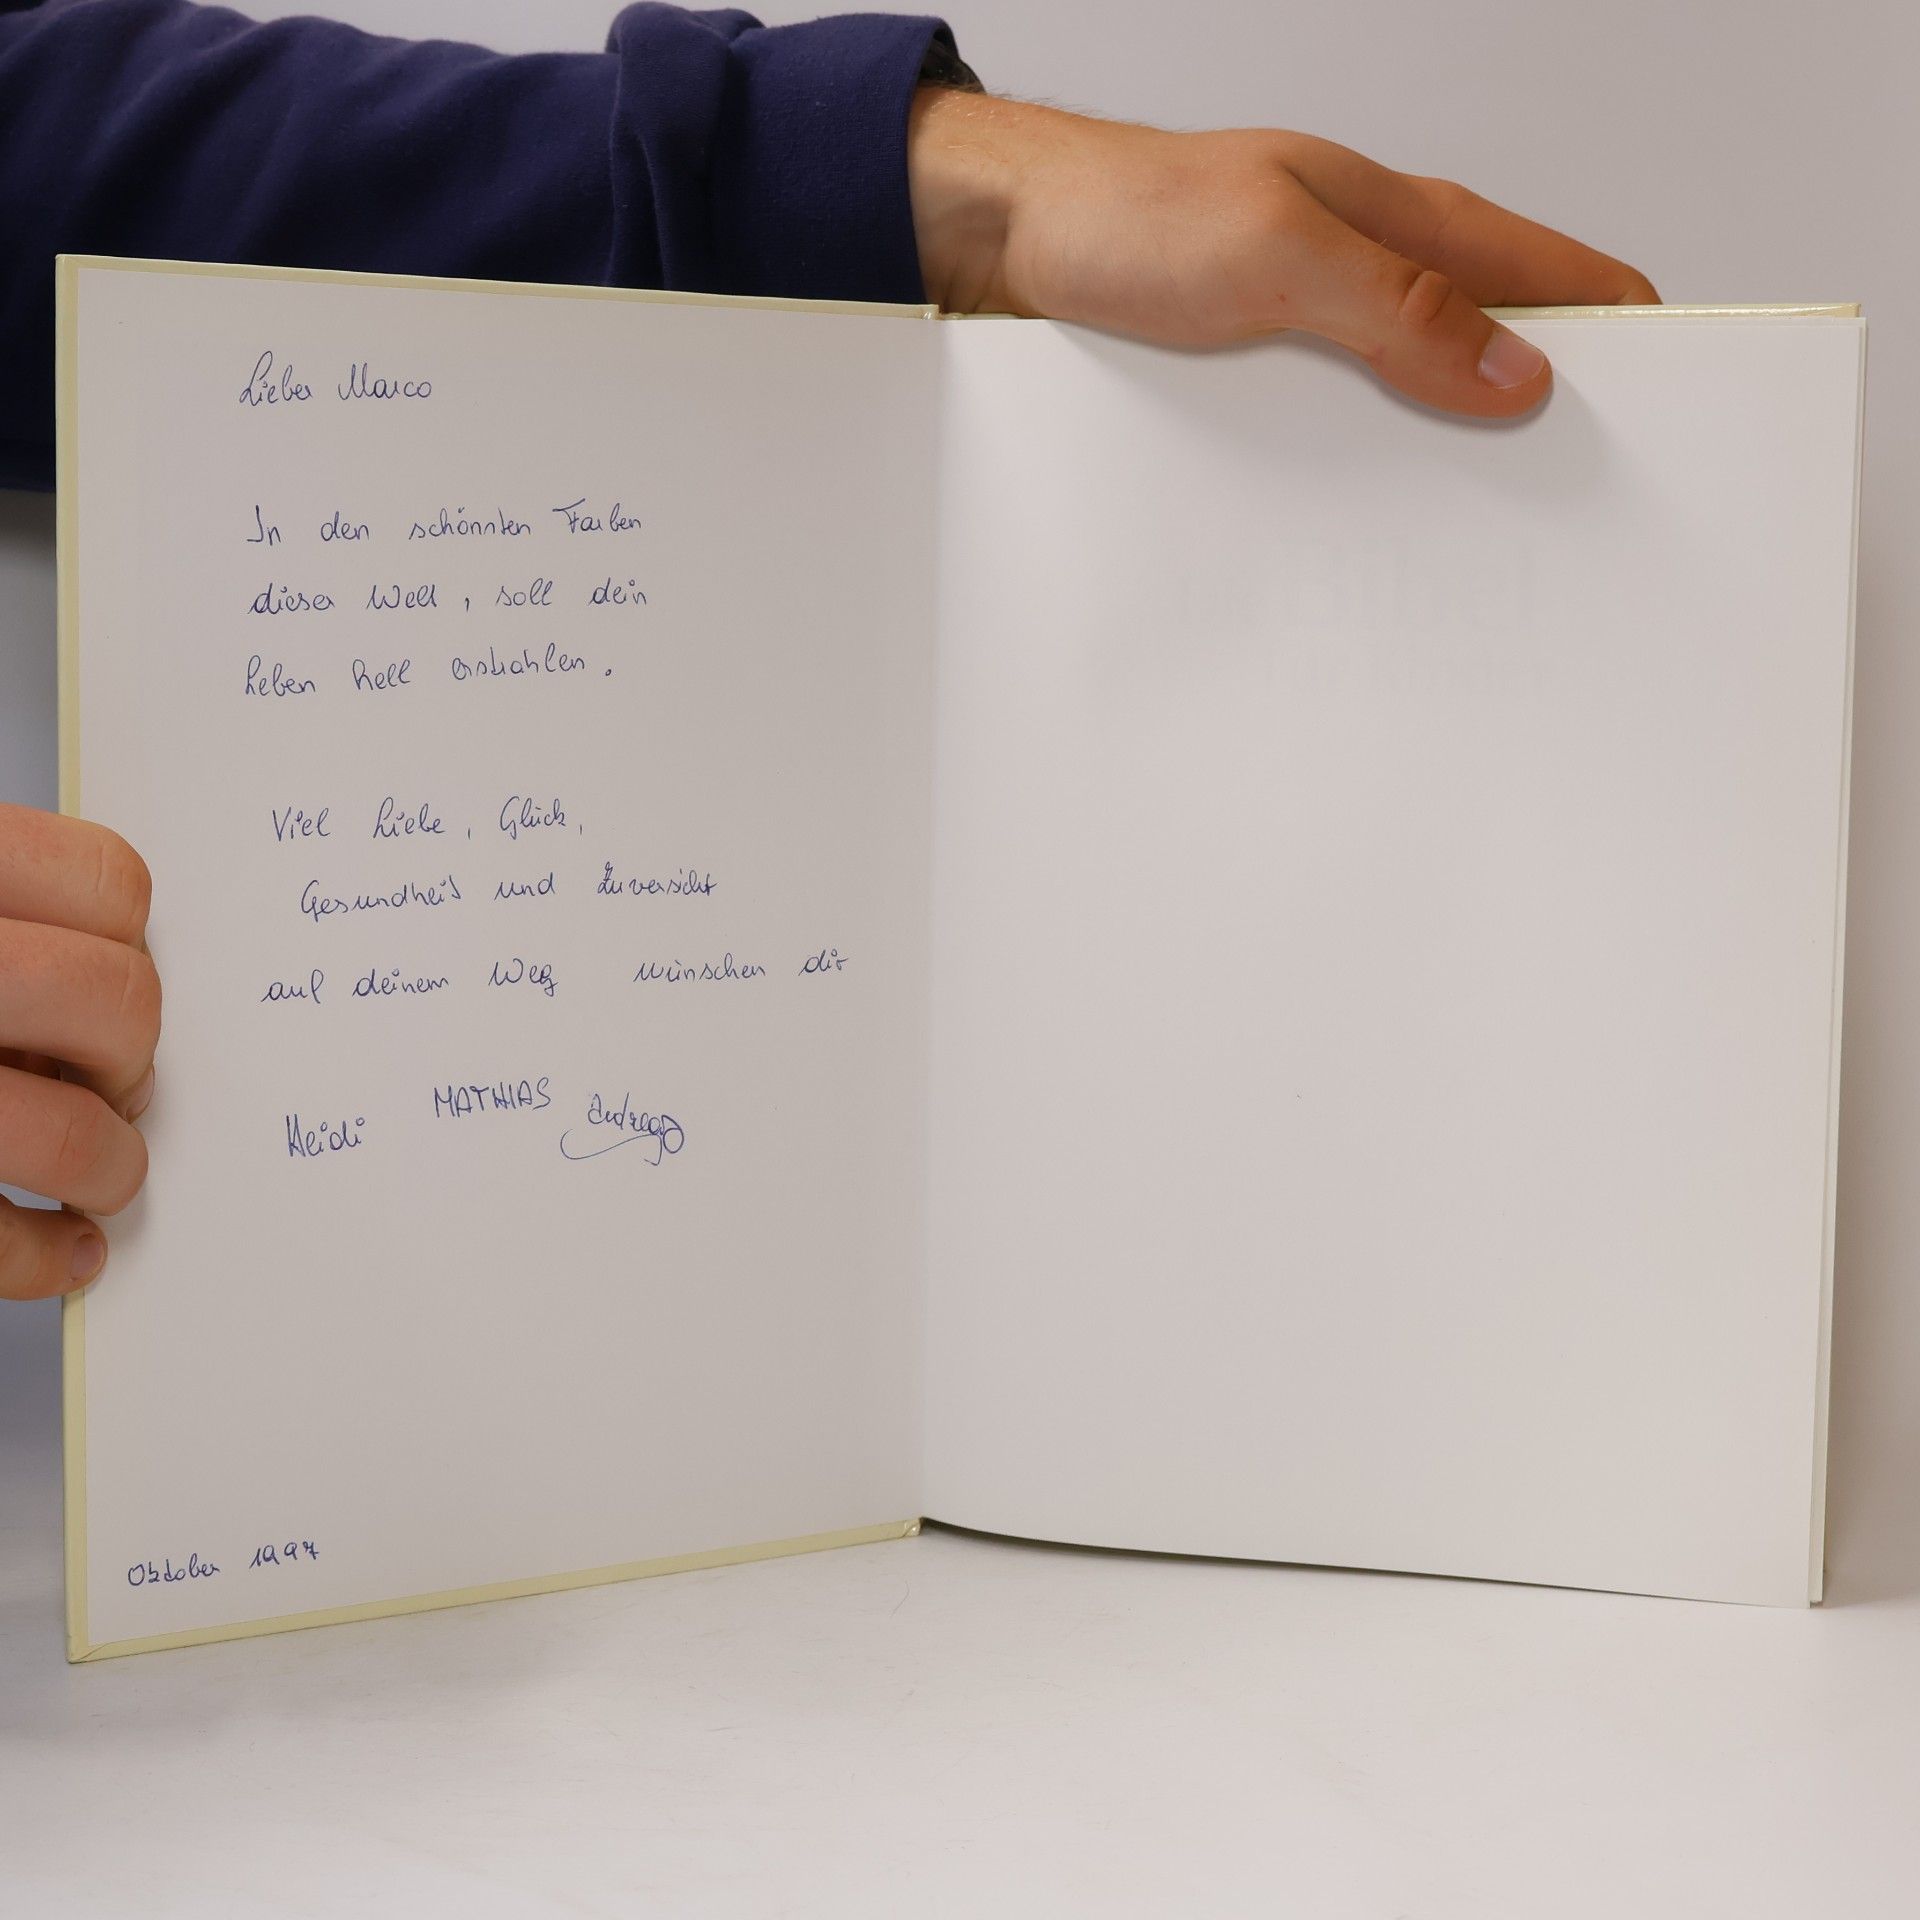 Lieber Marco
In den schönsten Farben
dieser Welt, soll dein
Leben hell erstrahlen.
Viel Liebe, Glück,
Gesundheit und Zuversicht
auf deinem Weg wünschen dir
Heidi MATHIAS Andreas
Oktober 1997